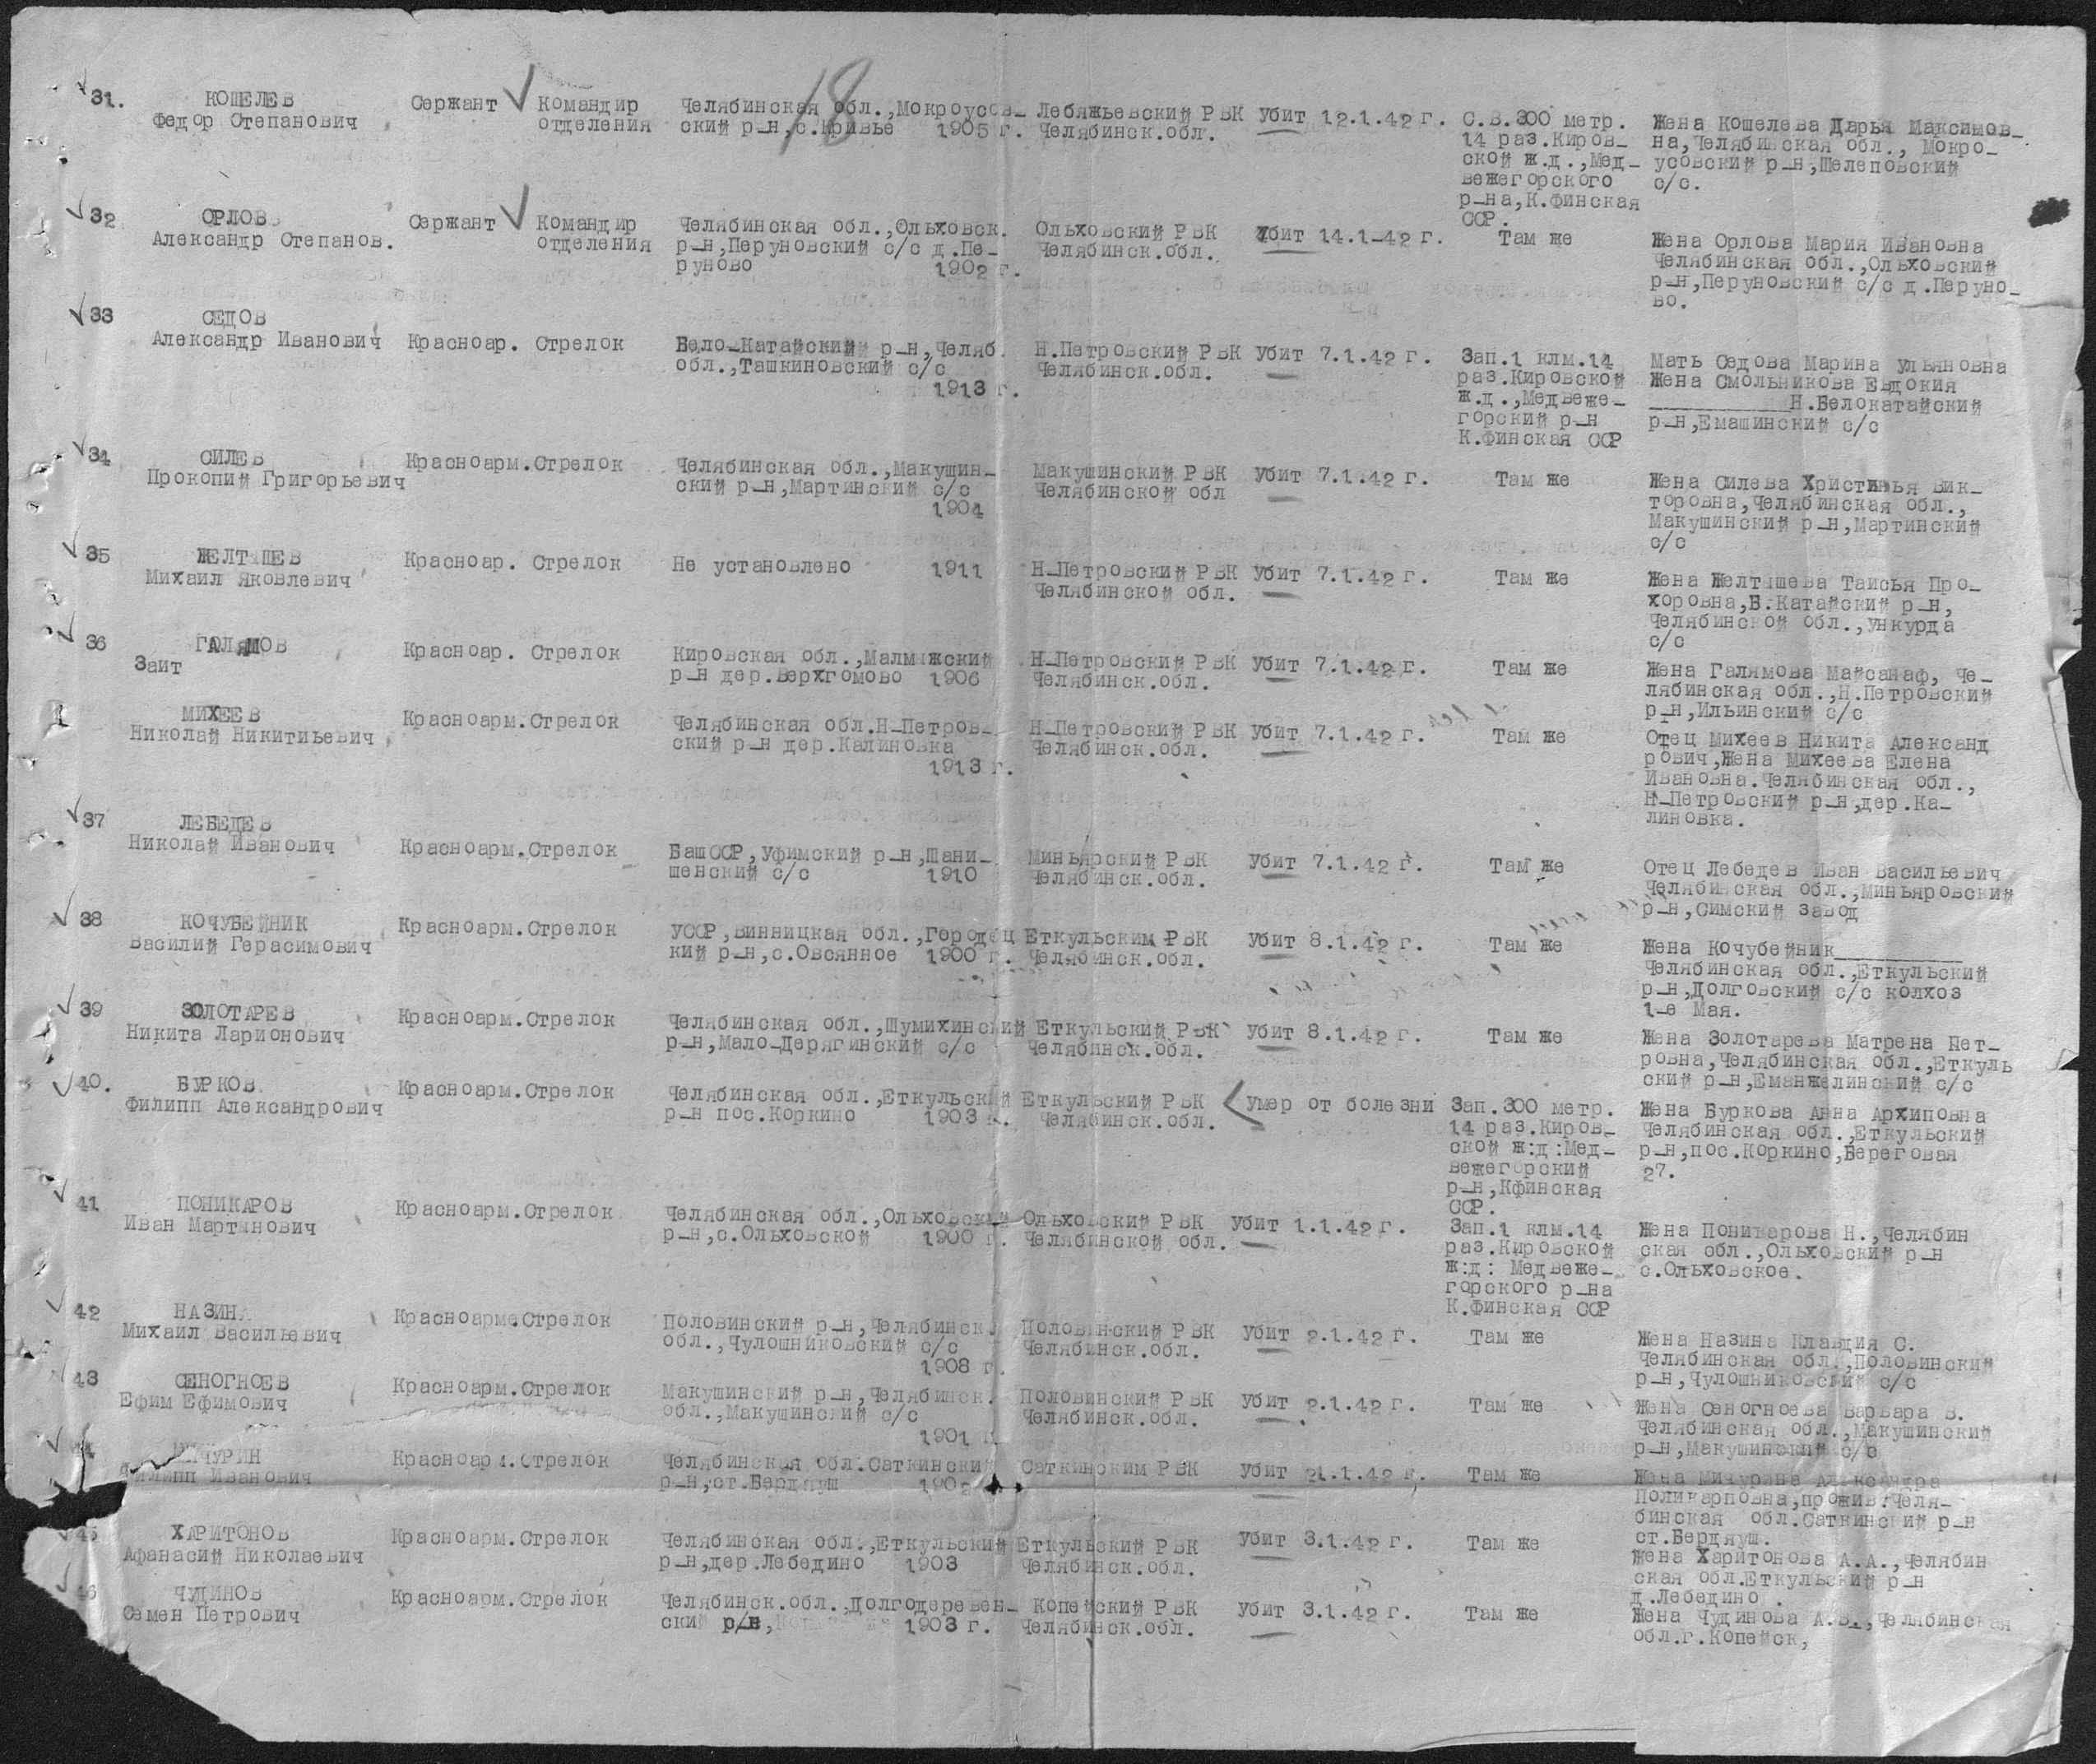 18
31. КОШЕЛЕВ
Федор Степанович
Сержант
Командир
отделения
Челябинская обл.,Мокроусов-
ский р-н,с.Кривье 1905 г.
Лебяжьевский РВК
Челябинск.обл.
Убит 12.1.42 г.
С.В.300 метр.
14 раз.Киров-
ской ж.д.,Мед-
вежегорского
р-на,К.Финская
ССР.
Жена Кошелева Дарья Максимов-
на,Челябинская обл., Мокро-
усовский р-н,Шелеповский
с/с.
32 ОРЛОВ
Александр Степанов.
Сержант
Командир
отделения
Челябинская обл.,Ольховск.
р-н,Перуновский с/с д.Пе-
руново 1902 г.
Ольховский РВК
Челябинск.обл.
Убит 14.1-42 г.
Там же
Жена Орлова Мария Ивановна
Челябинская обл.,Ольховский
р-н,Перуновский с/с д.Перуно-
во.
33 СЕДОВ
Александр Иванович
Красноар. Стрелок
Бело-Катайский р-н,Челяб.
обл.,Ташкиновский с/с
1913 г.
Н.Петровский РВК
Челябинск.обл.
Убит 7.1.42 г.
Зап.1 клм.14
раз.Кировской
ж.д.,Медвеже-
горский р-н
К.Финская ССР
Мать Седова Марина Ульяновна
Жена Смольникова Евдокия
___________Н.Белокатайский
р-н,Емашинский с/с
34 СИЛЕВ
Прокопий Григорьевич
Красноарм.Стрелок
Челябинская обл.,Макушин-
ский р-н,Мартинский с/с
1904
Макушинский РВК
Челябинской обл
Убит 7.1.42 г.
Там же
Жена Силева Христинья Вик-
торовна,Челябинская обл.,
Макушинский р-н,Мартинский
с/с
35 ЖЕЛТЫШЕВ
Михаил Яковлевич
Красноар. Стрелок
Не установлено 1911
Н-Петровский РВК
Челябинской обл.
Убит 7.1.42 г.
Там же
Жена Желтышева Таисья Про-
хоровна,Б.Катайский р-н,
Челябинской обл.,Ункурда
с/с
36 ГАЛЯМОВ
Заит
Красноар. Стрелок
Кировская обл.,Малмыжский
р-н дер.Верхгомово 1906
Н-Петровский РВК
Челябинск.обл.
Убит 7.1.42 г.
Там же
Жена Галямова Майсанаф, Че-
лябинская обл.,Н.Петровский
р-н,Ильинский с/с
МИХЕЕВ
Николай Никитиьевич
Красноарм.Стрелок
Челябинская обл.Н-Петров-
ский р-н дер.Калиновка
1913 г.
Н-Петровский РВК
Челябинск.обл.
Убит 7.1.42 г.
Там же
Отец Михеев Никита Александ
рович,Жена Михеева Елена
Ивановна.Челябинская обл.,
Н-Петровский р-н,дер.Ка-
линовка.
37 ЛЕБЕДЕВ
Николай Иванович
Красноарм.Стрелок
БашССР,Уфимский р-н,Шани-
шенский с/с 1910
Миньярский РВК
Челябинск.обл.
Убит 7.1.42 г.
Там же
Отец Лебедев Иван Васильевич
Челябинская обл.,Миньяровский
р-н,Симский завод
38 КОЧУБЕЙНИК
Василий Герасимович
Красноарм.Стрелок
УССР,Винницкая обл.,Городец
кий р-н,с.Овсянное 1900 г.
Еткульским РВК
Челябинск.обл.
Убит 8.1.42 г.
Там же
Жена Кочубейник__________
Челябинская обл.,Еткульский
р-н,Долговский с/с колхоз
1-е Мая.
39 ЗОЛОТАРЕВ
Никита Ларионович
Красноарм.Стрелок
Челябинская обл.,Шумихинский
р-н,Мало-Дерягинский с/с
Еткульский РВК
Челябинск.обл.
Убит 8.1.42 г.
Там же
Жена Золотарева Матрена Пет-
ровна,Челябинская обл.,Еткуль
ский р-н,Еманжелинский с/с
40. БУРКОВ
Филипп Александрович
Красноарм.Стрелок
Челябинская обл.,Еткульский
р-н пос.Коркино 1903 г.
Еткульский РВК
Челябинск.обл.
Умер от болезни
Зап.300 метр.
14 раз.Киров-
ской ж:д:Мед-
вежегорский
р-н,Кфинская
ССР.
Жена Буркова Анна Архиповна
Челябинская обл.,Еткульский
р-н,пос.Коркино,Береговая
27.
41 ПОНИКАРОВ
Иван Мартынович
Красноарм.Стрелок
Челябинская обл.,Ольховский
р-н,с.Ольховской 1900 г.
Ольховский РВК
Челябинской обл.
Убит 1.1.42 г.
Зап.1 клм.14
раз.Кировской
ж:д: Медвеже-
горского р-на
К.Финская ССР
Жена Поникарова Н.,Челябин
ская обл.,Ольховский р-н
с.Ольховское.
42 НАЗИН
Михаил Васильевич
Красноарме Стрелок
Половинский р-н,Челябинск.
обл.,Чулошниковский с/с
1908 г.
Половинский РВК
Челябинск.обл.
Убит 2.1.42 г.
Там же
Жена Назина Клавдия С.
Челябинская обл.,Половинский
р-н,Чулошниковский с/с
43 СЕНОГНОЕВ
Ефим Ефимович
Красноарм.Стрелок
Макушинский р-н,Челябинск.
обл.,Макушинский с/с
1901 г.
Половинский РВК
Челябинск.обл.
Убит 2.1.42 г.
Там же
Жена Сеногноева Варвара В.
Челябинская обл.,Макушинский
р-н,Макушинский с/с
МИЧУРИН
Филипп Иванович
Красноарм.Стрелок
Челябинская обл.Саткинский
р-н,ст.Бердяуш
Саткинским РВК
Убит 21.1.42 г.
Там же
Жена Мичурина Александра
Поликарповна,прожив:Челя-
бинская обл.Саткинский р-н
ст.Бердяуш.
45 ХАРИТОНОВ
Афанасий Николаевич
Красноарм.Стрелок
Челябинская обл.,Еткульский
р-н,дер.Лебедино 1903
Еткульский РВК
Челябинск.обл.
Убит 3.1.42 г.
Там же
Жена Харитонова А.А.,Челябин
ская обл.Еткульский р-н
д.Лебедино.
46 ЧУДИНОВ
Семен Петрович
Красноарм.Стрелок
Челябинск.обл.,Долгодеревен-
ский р/н, 1903 г.
Копейский РВК
Челябинск.обл.
Убит 3.1.42 г.
Там же
Жена Чудинова А.В.,Челябинская
обл.г.Копейск,